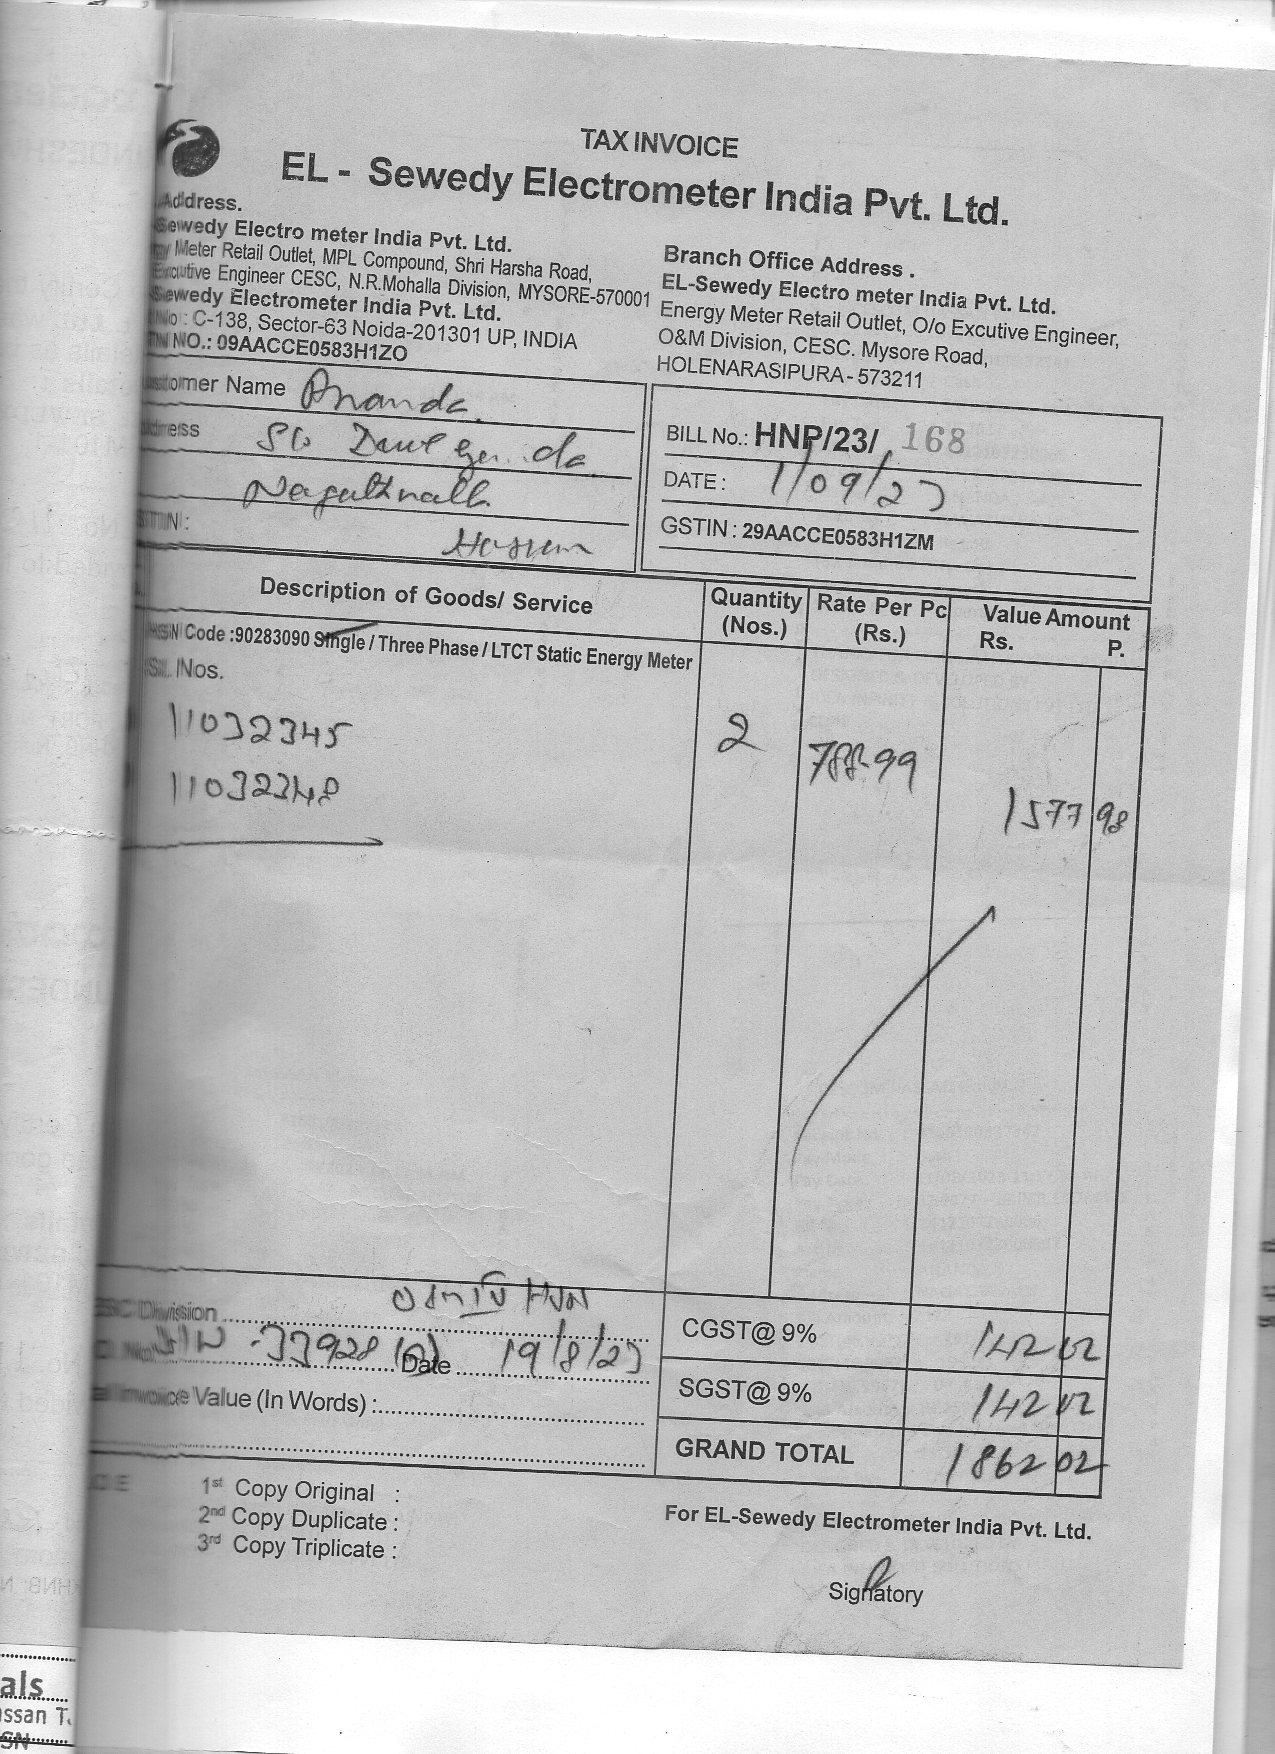 TAX INVOICE
EL - Sewedy Electrometer India Pvt. Ltd.
Address.
Sewedy Electro meter India Pvt. Ltd.
Meter Retail Outlet, MPL Compound, Shri Harsha Road,
Executive Engineer CESC, N.R.Mohalla Division, MYSORE-570001
Sewedy Electrometer India Pvt. Ltd.
No : C-138, Sector-63 Noida-201301 UP, INDIA
NO.: 09AACCE0583H1ZO
Branch Office Address .
EL-Sewedy Electro meter India Pvt. Ltd.
Energy Meter Retail Outlet, O/o Excutive Engineer,
O&M Division, CESC. Mysore Road,
HOLENARASIPURA - 573211
Customer Name Ananda
Address S/o
Hassan
BILL No.: HNP/23/ 168
DATE : 1/09/23
GSTIN : 29AACCE0583H1ZM
Description of Goods/ Service
Quantity (Nos.)
Rate Per Pc (Rs.)
Value Amount
Rs. P.
HSN Code :90283090 Single / Three Phase / LTCT Static Energy Meter
Sl. Nos.
11032345
11032348
2
788-99
1577 98
Division
33928 Date 19/8/23
Invoice Value (In Words) :
CGST@ 9% 142 02
SGST@ 9% 142 02
GRAND TOTAL 1862 02
1st Copy Original :
2nd Copy Duplicate :
3rd Copy Triplicate :
For EL-Sewedy Electrometer India Pvt. Ltd.
Signatory
als
ssan T.
SN